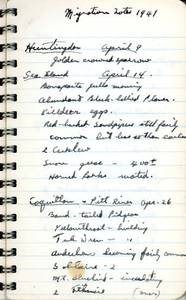 Migration Notes 1941
Huntingdon April 9
Golden crowned sparrow
Sea Island April 14 -
Bonaparte gulls moving
Abundant Black-bellied Plover.
Killdeer eggs.
Red-backed Sandpipers still fairly
common but less so than earlier
2 Curlew
Snow geese - 400+
Horned larks mated.
Coquitlam & Pitt Rivers Apr. 26
Band-tailed Pidgeon
Yellowthroat - building
Tule Wren - "
Audubon becoming fairly common
Solitaire - 2
Mt. bluebird - incubating